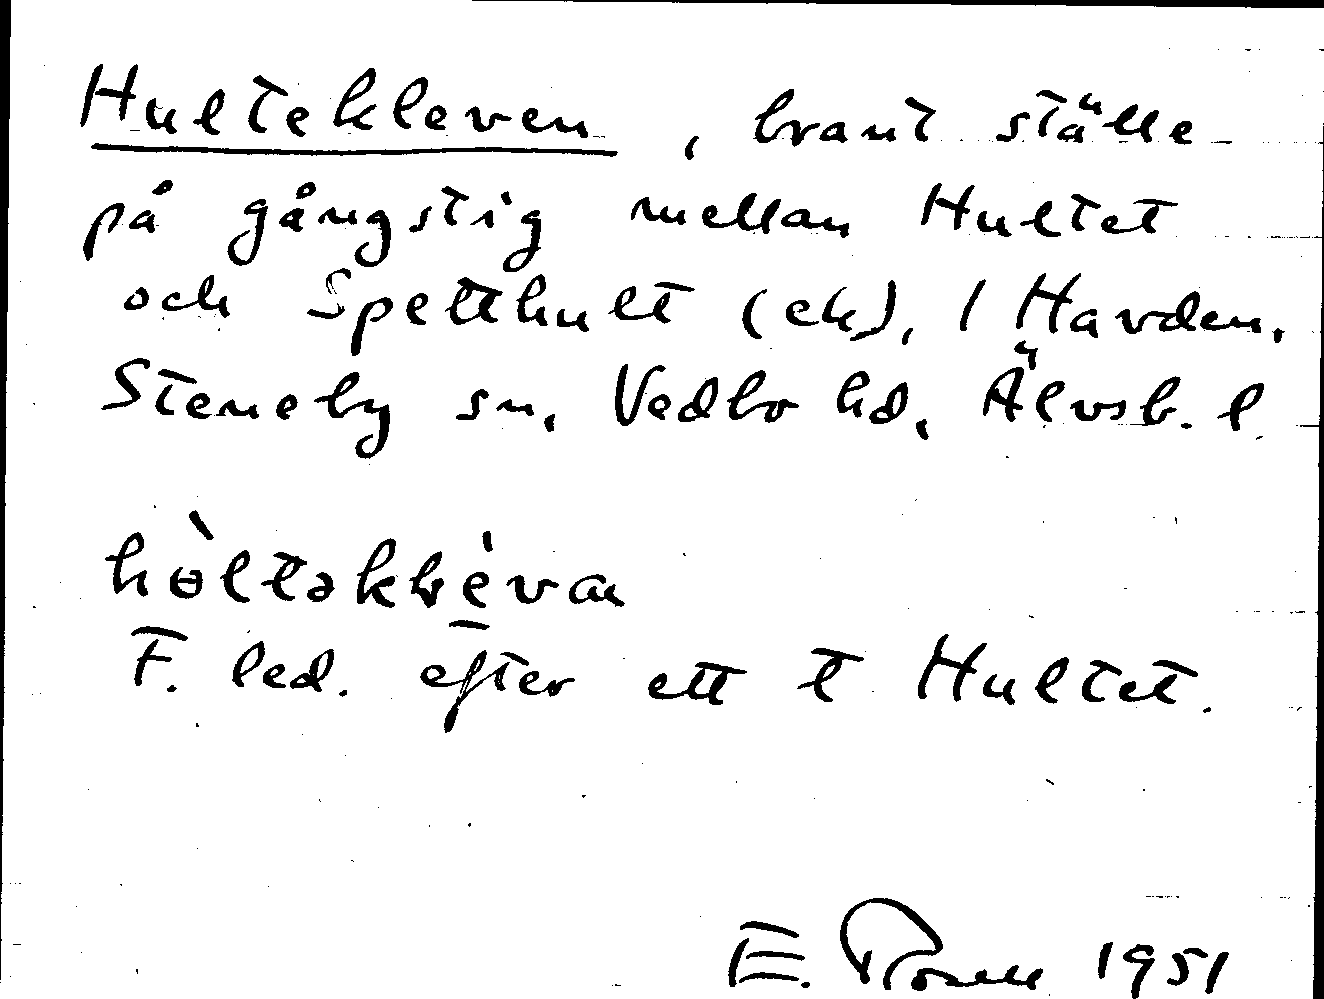 Hultekleven, brant ställe
på gångstig mellan Hultet
och Spetthult (eh), 1 Havden.
Steneby sn, Vedbo hd, Älvsb. l
F. led. efter ett t Hultet.
E. Rosell 1951